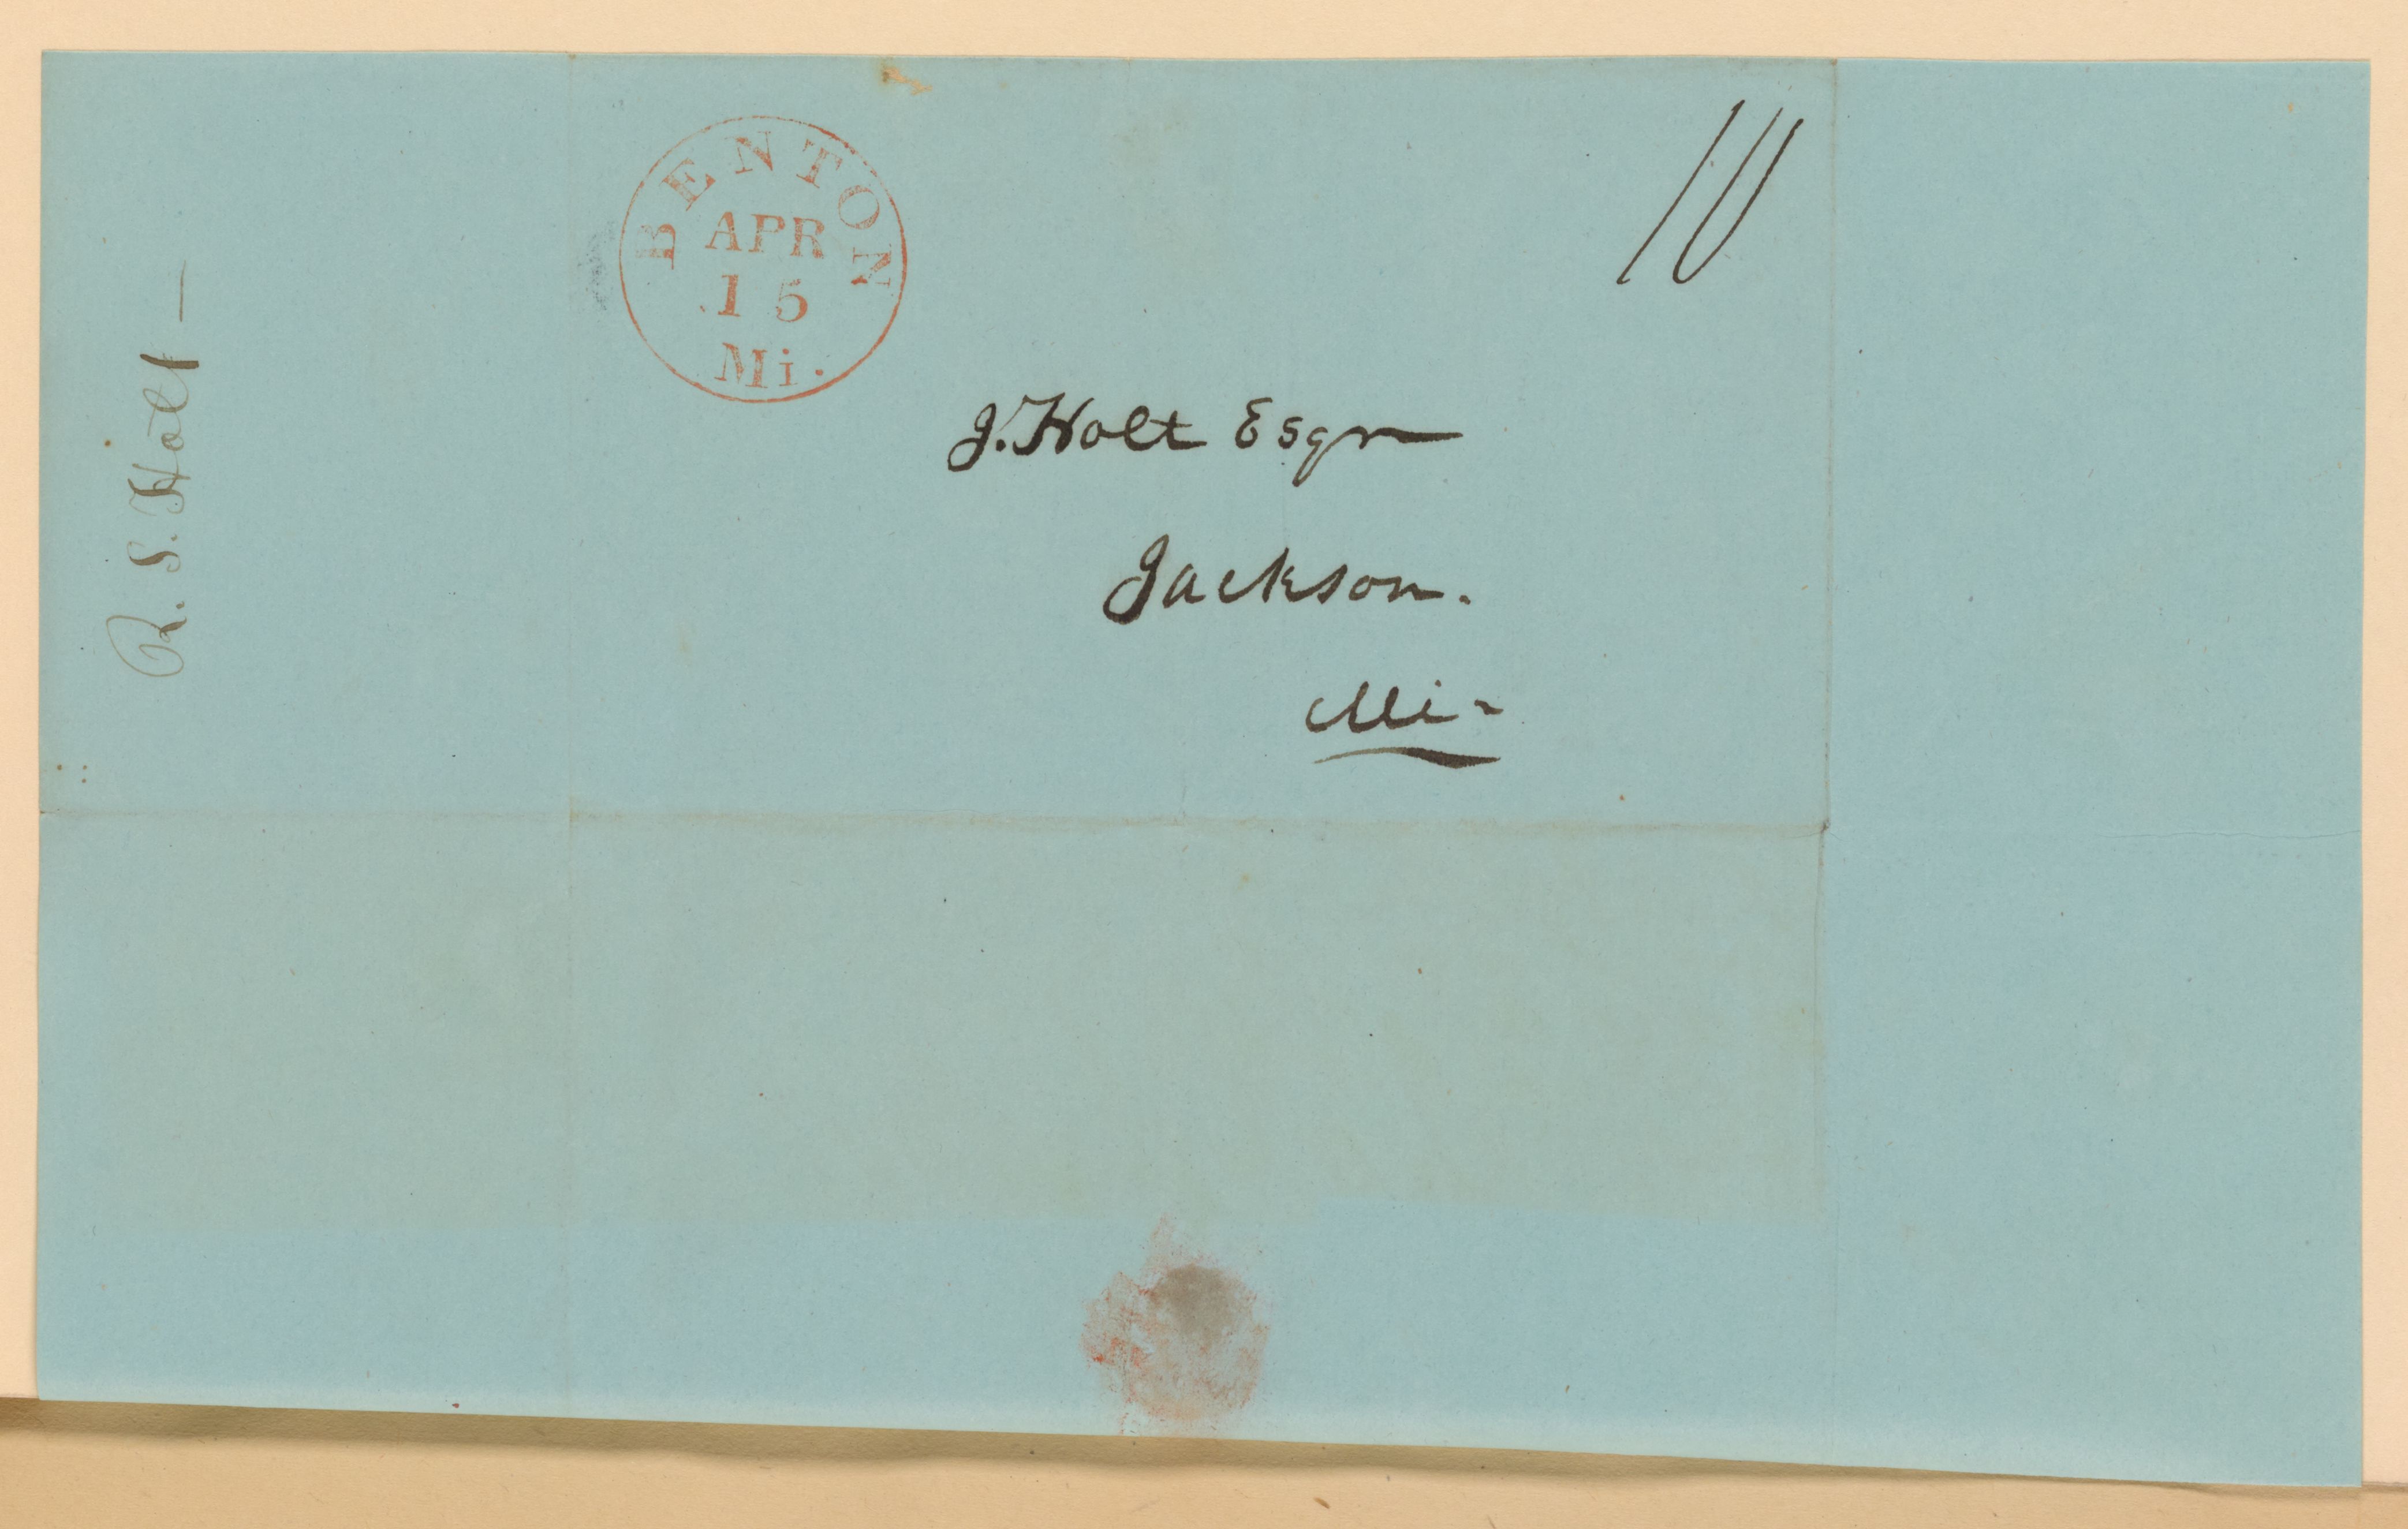 BENTON
APR
15
Mi.
10
J. Holt Esqr
Jackson.
Mi-
R. S. Holt —